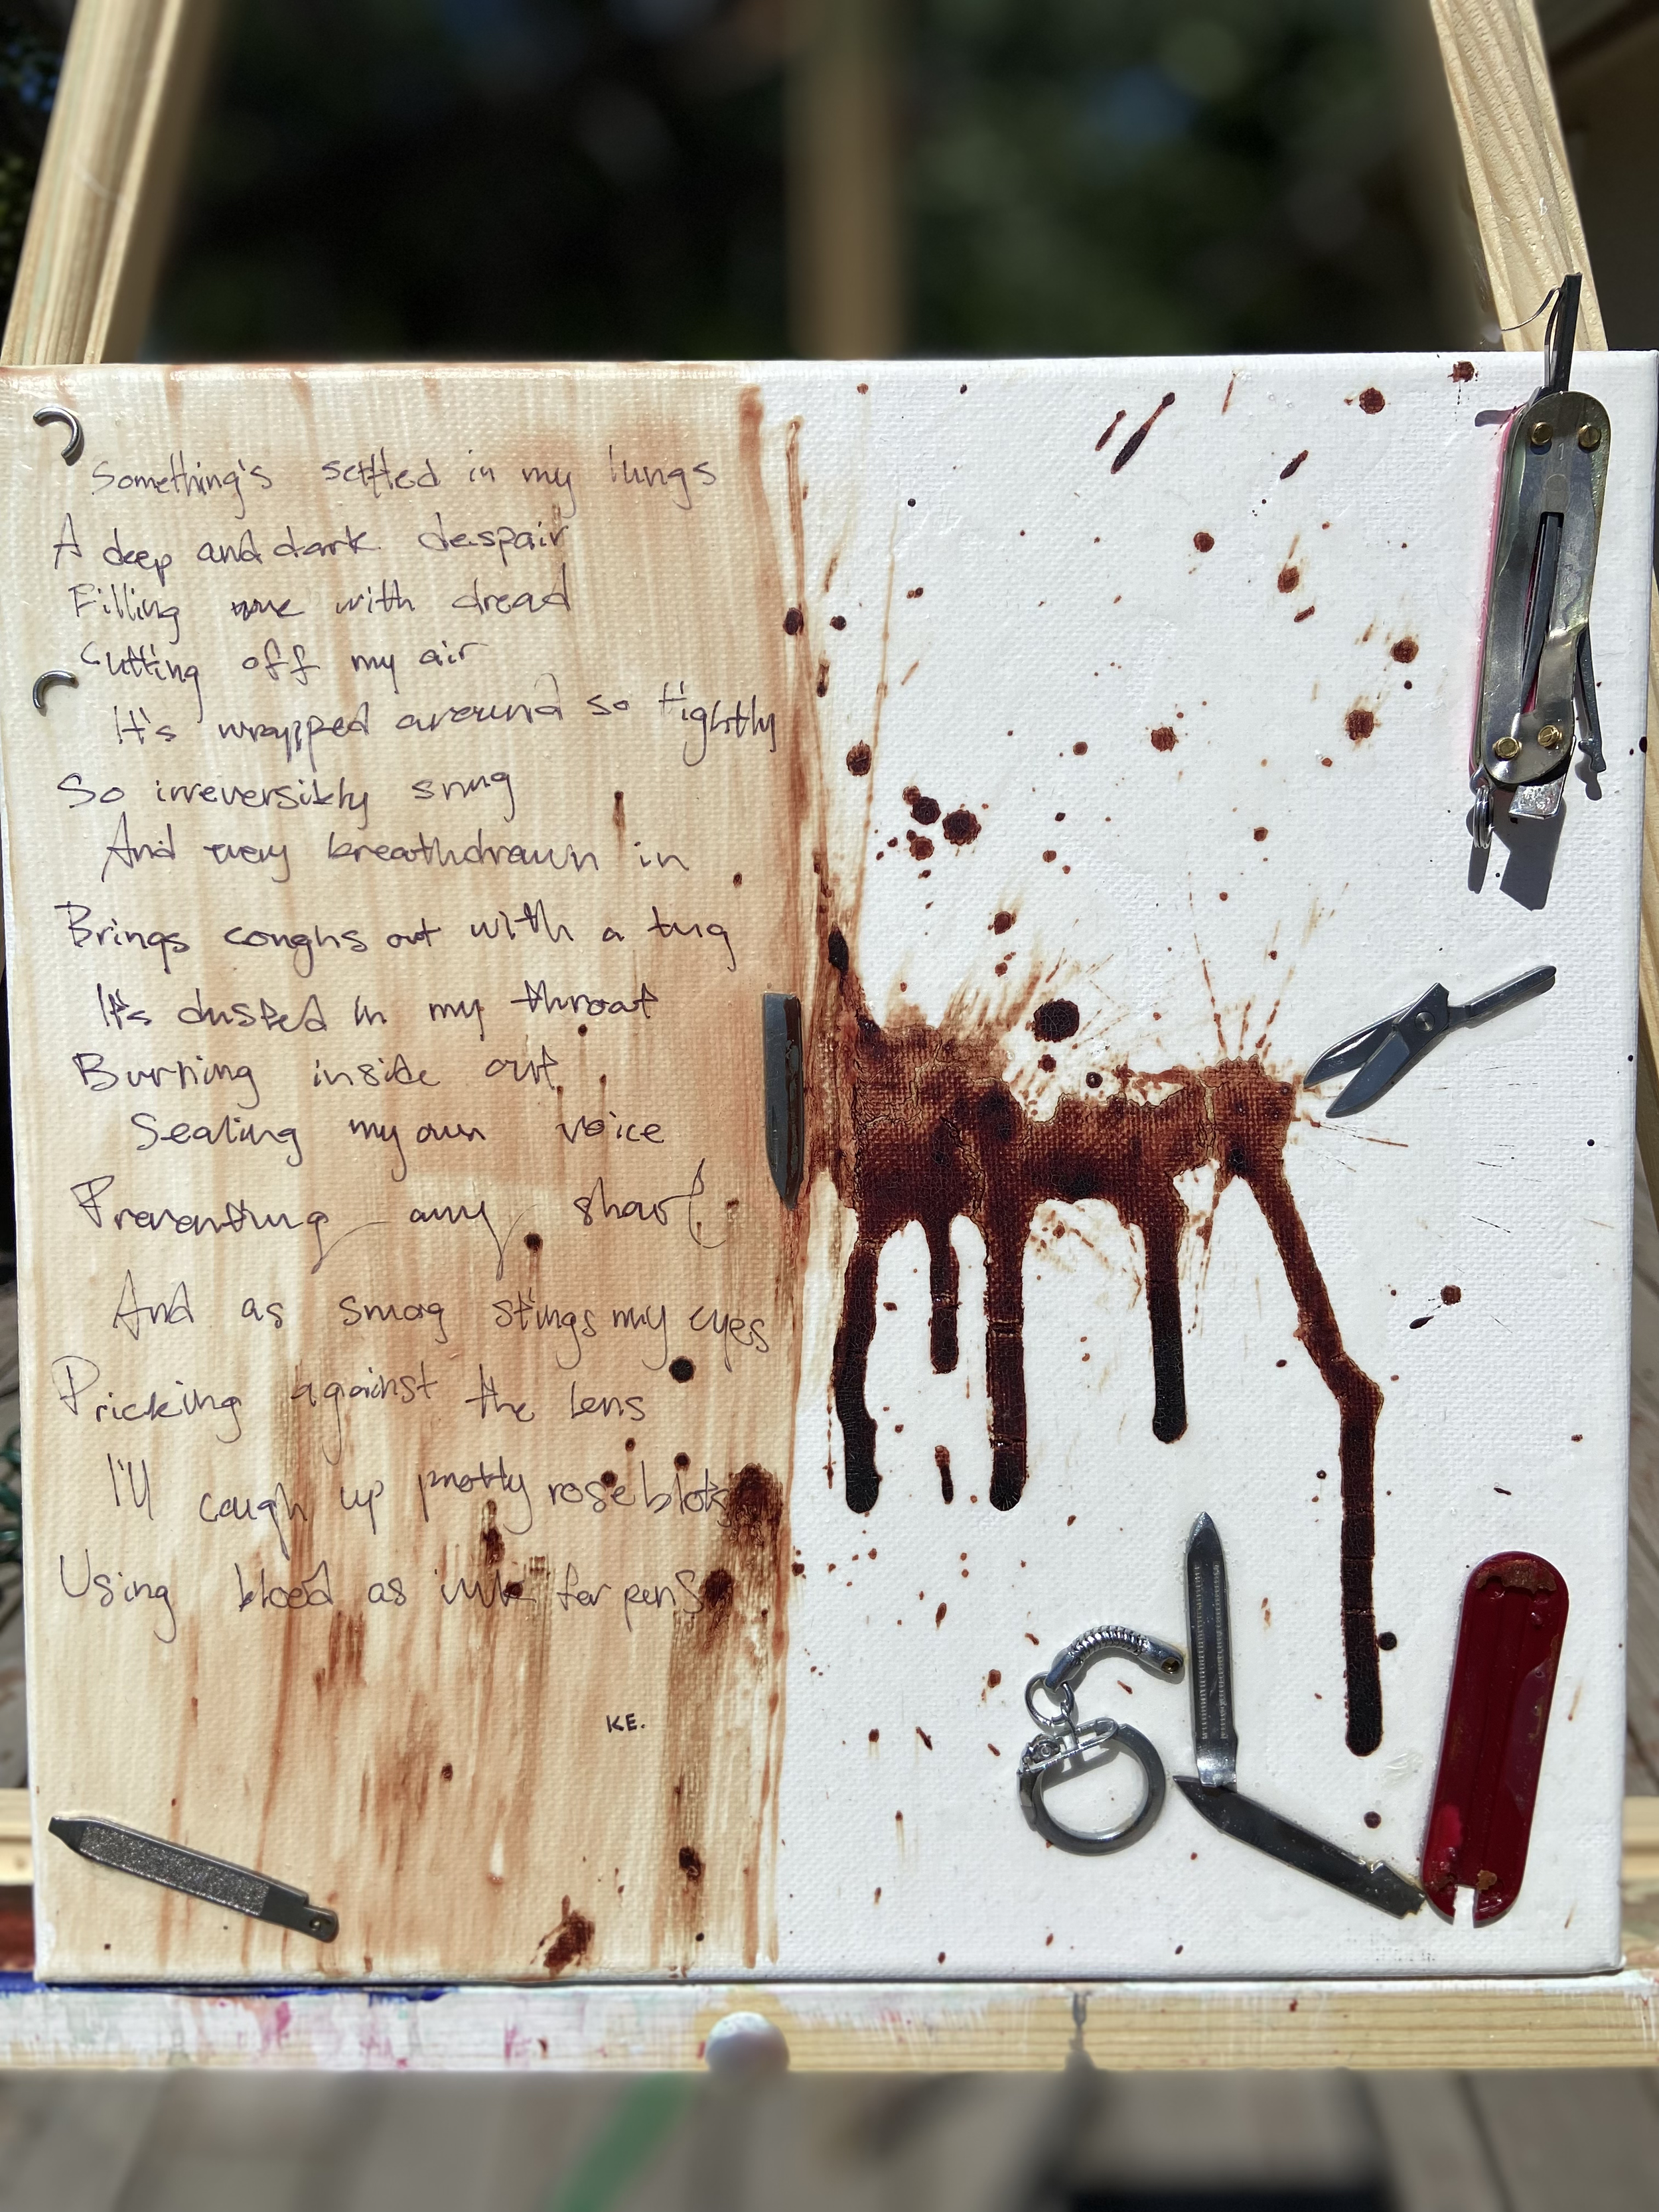 Something's settled in my lungs
A deep and dark despair
Filling me with dread
Cutting off my air
It's wrapped around so tightly
So irreversibly snug
And every breath drawn in
Brings coughs out with a tug
It's dusted in my throat
Burning inside out
Sealing my own voice
Preventing any shout
And as smog stings my eyes
Pricking against the lens
I'll cough up pretty rose blots
Using blood as ink for pens
KE.